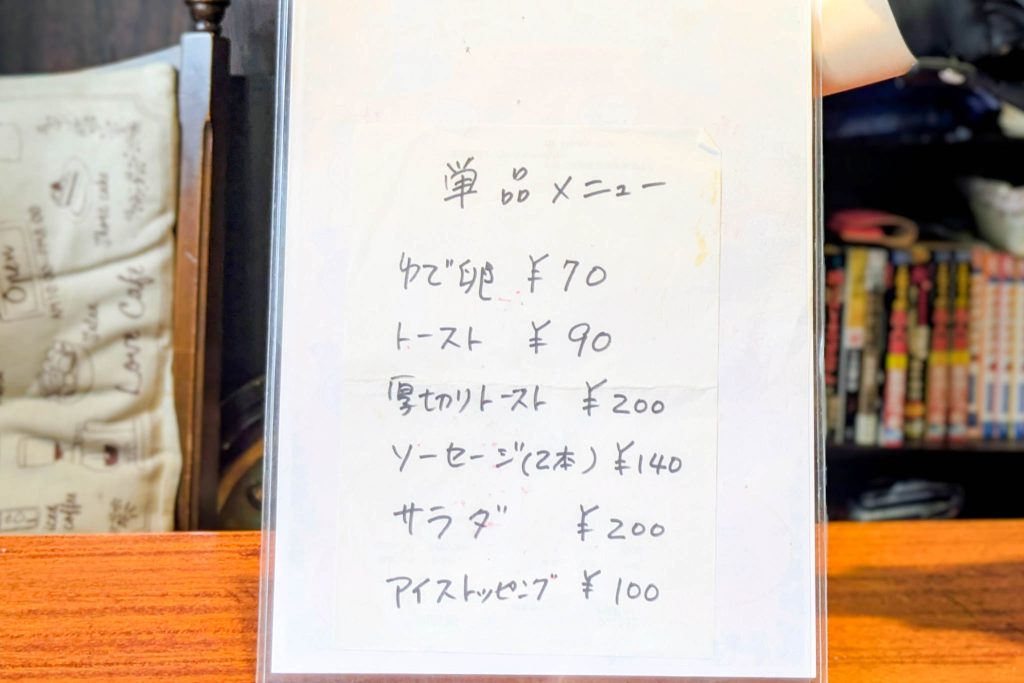 単品メニュー
ゆで卵 ¥70
トースト ¥90
厚切りトースト ¥200
ソーセージ(2本) ¥140
サラダ ¥200
アイストッピング ¥100
Open
Love Cafe